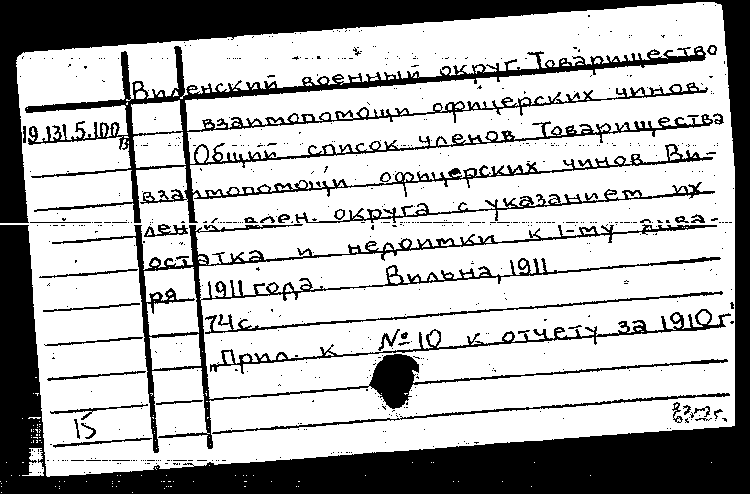 Виленский военный округ. Товарищество
взаимопомощи офицерских чинов.
19.131.5.100
Общий список членов Товарищества
взаимопомощи офицерских чинов Ви-
ленск. воен. округа с указанием их
остатка и недоимки к 1-му янва-
ря 1911 года. Вильна, 1911.
74 с.
„Прил. к №10 к отчету за 1910 г."
15